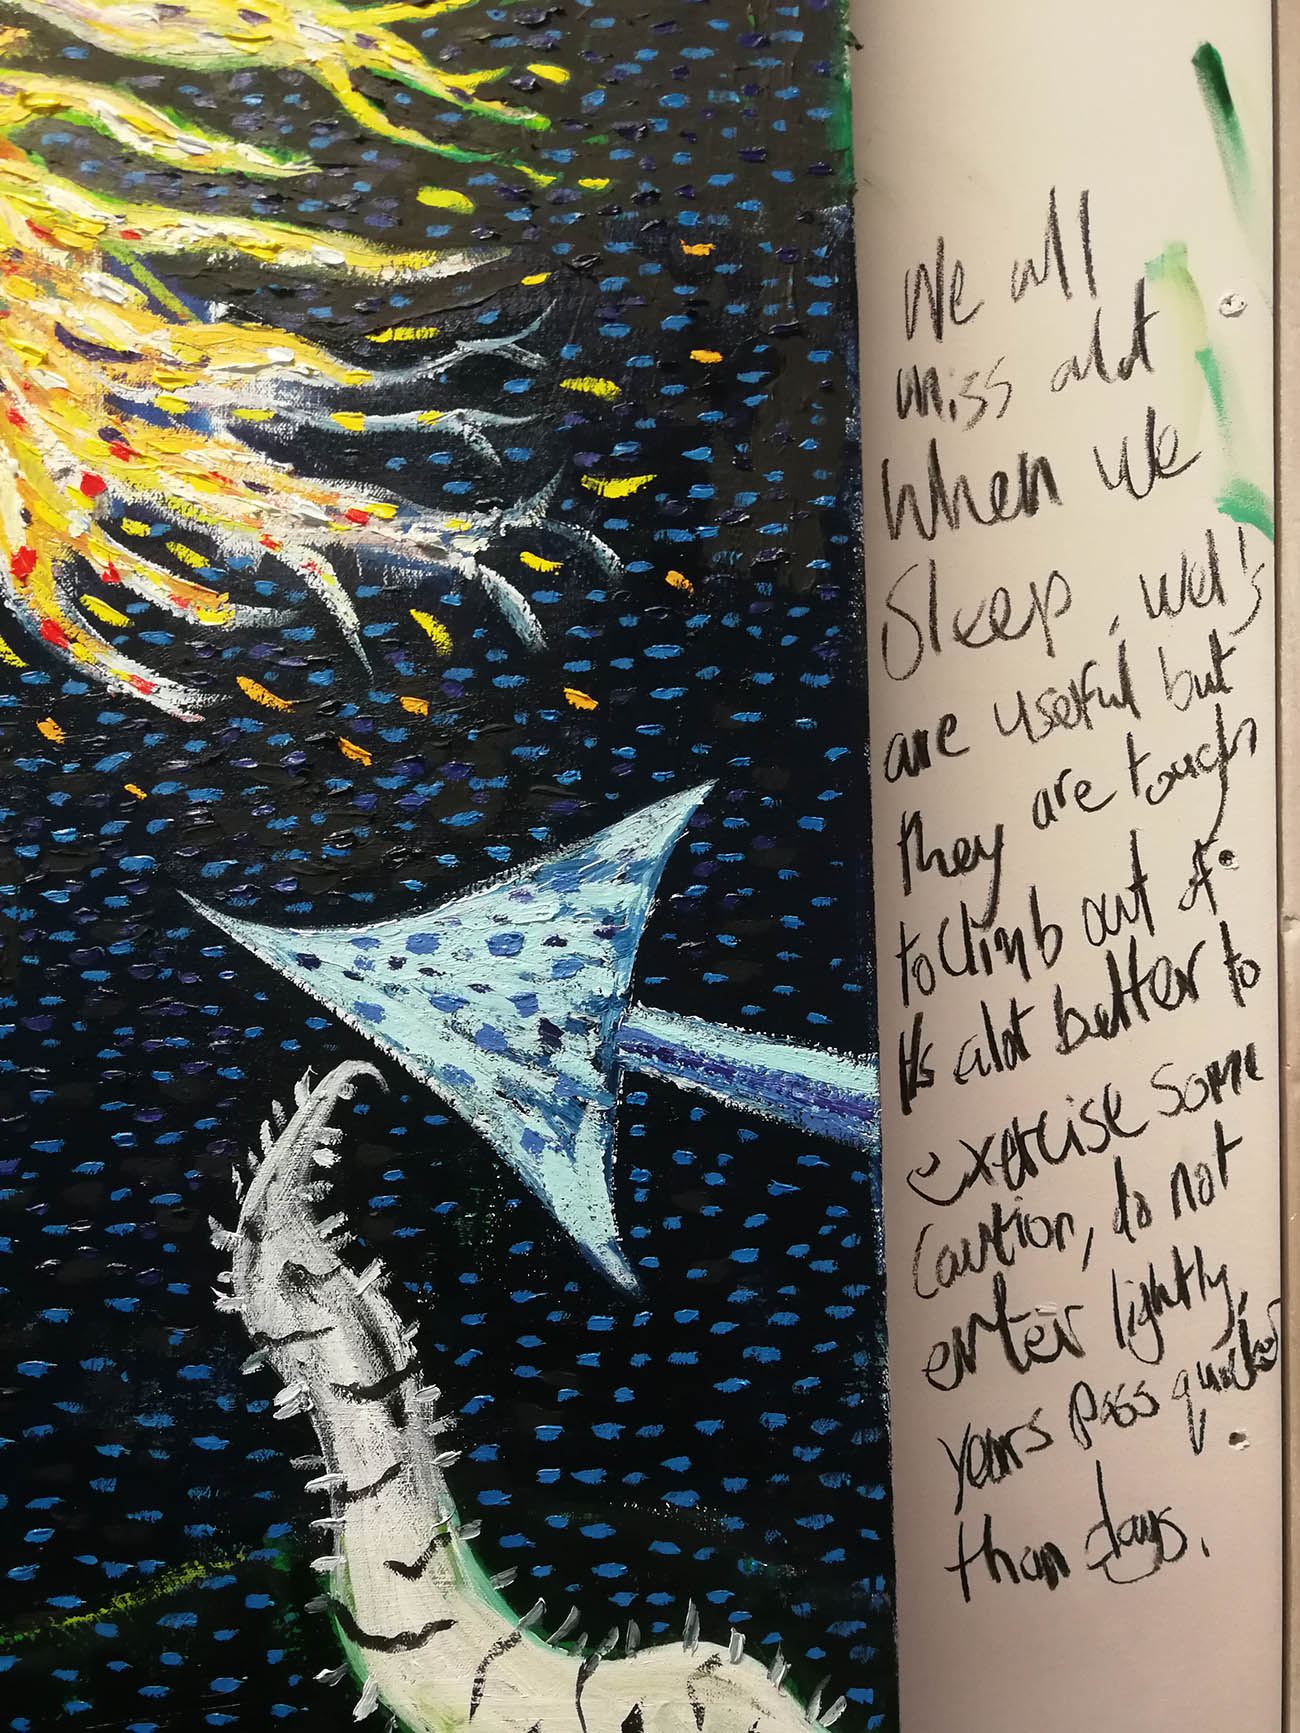 We all
miss alot
when we
Sleep, wel's
are useful but
they are tough
to climb out of
Its alot better to
exercise some
caution, do not
enter lightly,
years pass quicker
than days.